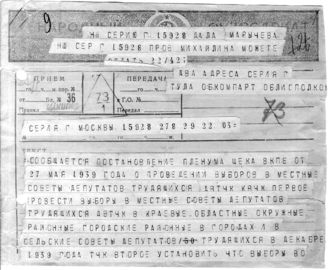 9
НА СЕРИЮ Г. 15928 ДАЛА МАРЫЧЕВА
НА СЕР Г 15928 ПРОВ МИХАЙЛИНА МОЖЕТЕ
22/42
126
ПРИЕМ
ПЕРЕДАЧА
ДВА АДРЕСА СЕРИЯ Г
ТУЛА ОБКОМПАРТ ОБЛИСПОЛКОМ
36
73
Принял
73
СЕРИЯ Г МОСКВЫ 15928 278 29 22 03=
СООБЩАЕТСЯ ПОСТАНОВЛЕНИЕ ПЛЕНУМА ЦЕКА ВКПБ ОТ
27 МАЯ 1939 ГОДА О ПРОВЕДЕНИИ ВЫБОРОВ В МЕСТНЫЕ
СОВЕТЫ ДЕПУТАТОВ ТРУДЯЩИХСЯ ДВТЧК КВЧК ПЕРВОЕ
ПРОВЕСТИ ВЫБОРЫ В МЕСТНЫЕ СОВЕТЫ ДЕПУТАТОВ
ТРУДЯЩИХСЯ ДВТЧК В КРАЕВЫЕ, ОБЛАСТНЫЕ ОКРУЖНЫЕ,
РАЙОННЫЕ ГОРОДСКИЕ РАЙОННЫЕ В ГОРОДАХ И В
СЕЛЬСКИЕ СОВЕТЫ ДЕПУТАТОВ/50 ТРУДЯЩИХСЯ В ДЕКАБРЕ
1939 ГОДА ТЧК ВТОРОЕ УСТАНОВИТЬ ЧТО ВЫБОРЫ ВО